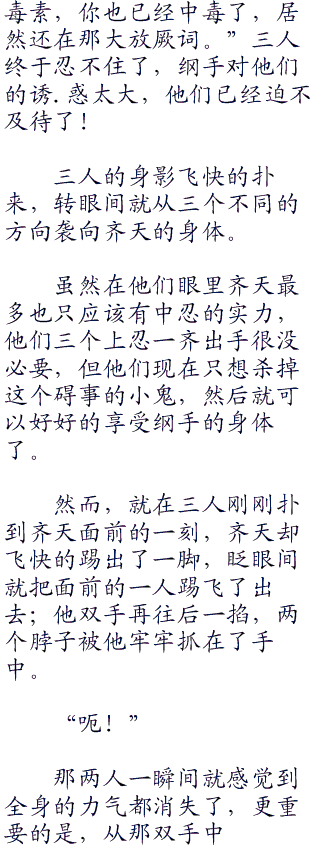 毒素，你也已经中毒了，居
然还在那大放厥词。”三人
终于忍不住了，纲手对他们
的诱.惑太大，他们已经迫不
及待了！
三人的身影飞快的扑
来，转眼间就从三个不同的
方向袭向齐天的身体。
虽然在他们眼里齐天最
多也只应该有中忍的实力，
他们三个上忍一齐出手很没
必要，但他们现在只想杀掉
这个碍事的小鬼，然后就可
以好好的享受纲手的身体
了。
然而，就在三人刚刚扑
到齐天面前的一刻，齐天却
飞快的踢出了一脚，眨眼间
就把面前的一人踢飞了出
去；他双手再往后一掐，两
个脖子被他牢牢抓在了手
中。
“呃！”
那两人一瞬间就感觉到
全身的力气都消失了，更重
要的是，从那双手中